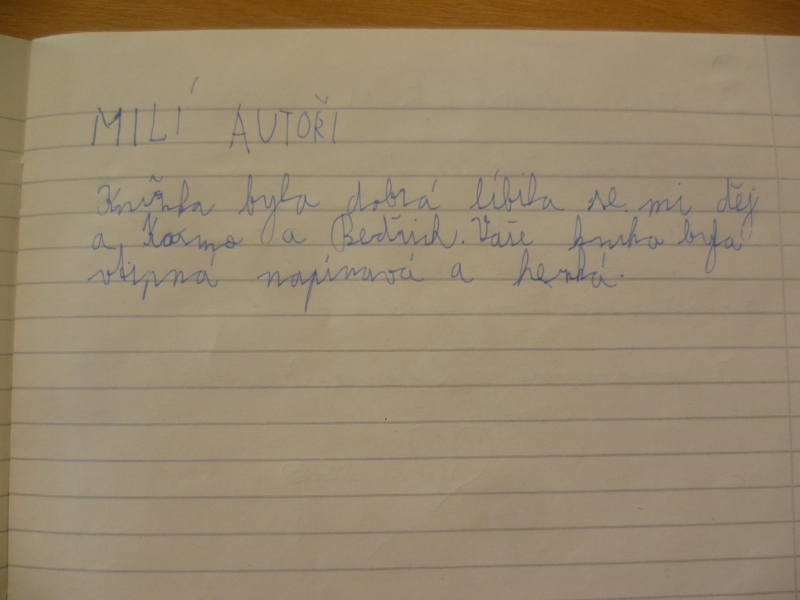 MILÍ AUTOŘI
Knížka byla dobrá líbila se mi děj
a Kosmo a Bedřich. Vaše kniha byla
vtipná napínavá a hezká.